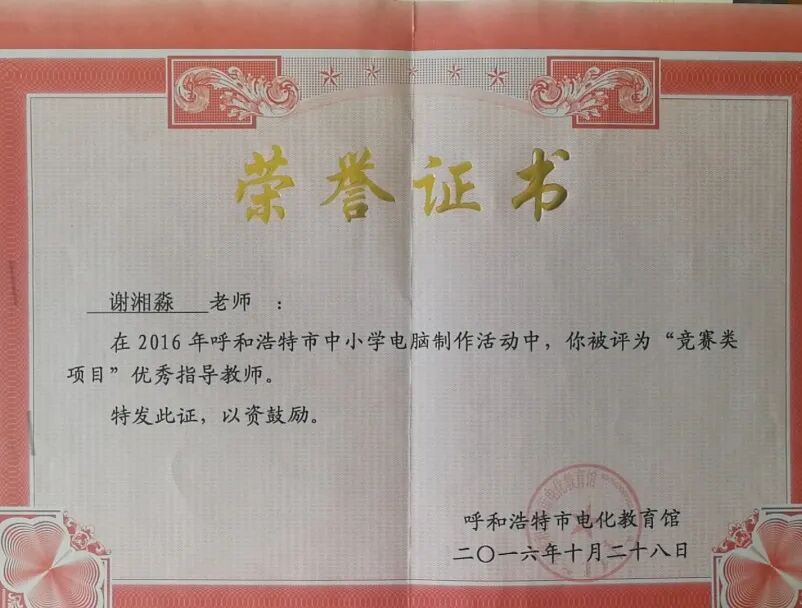 荣誉证书
谢湘淼 老师 ：
在 2016 年呼和浩特市中小学电脑制作活动中，你被评为“竞赛类
项目”优秀指导教师。
特发此证，以资鼓励。
呼和浩特市电化教育馆
二〇一六年十月二十八日